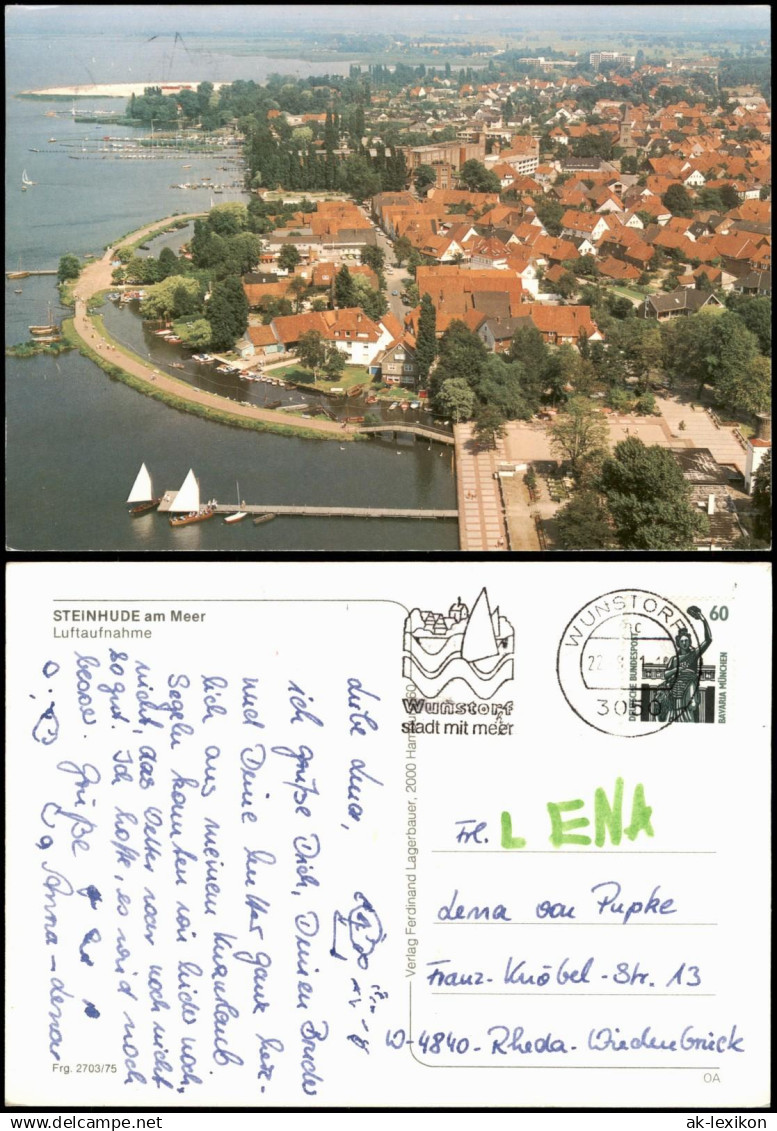 STEINHUDE am Meer
Luftaufnahme
Liebe Lena,
ich grüße Dich, Deinen Bruder
und Deine Mutter ganz herz-
lich aus meinem Kurzurlaub
Segeln konnten wir leider noch
nicht, das Wetter war noch nicht
so gut. Ich hoffe, es wird noch
besser. Grüße
Anna-Lena
Frg. 2703/75
Verlag Ferdinand Lagerbauer, 2000 Hamburg 60
Wunstorf
stadt mit meer
WUNSTORF
3050
60
DEUTSCHE BUNDESPOST
BAVARIA MÜNCHEN
Frl. LENA
Lena von Pupke
Franz-Knöbel-Str. 13
W-4840-Rheda-Wiedenbrück
OA
© ak-lexikon.de
ak-lexikon